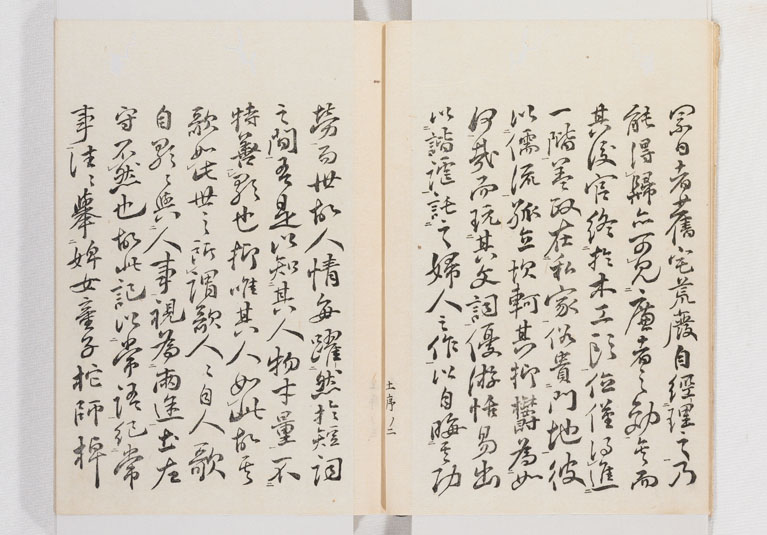 累日者舊宅荒廢自經理之乃
能得歸亦可見廉者之効矣而
其後官終於木工頭位僅得進
一階蓋政在私家俗貴門地彼
以儒流孤立坎軻其抑欝為如
何哉而玩其文詞優游恬易出
以諧謔託之婦人之作以自晦其功
土序ノ二
勞而世故人情每躍然於短詞
之間吾是以知其人物才量不
特善歌也抑唯其人如此故其
歌如此世之所謂歌人々自人歌
自歌々與人事視為兩途土左
守不然也故此記以常語紀常
事津々擧婢女童子柁師棹